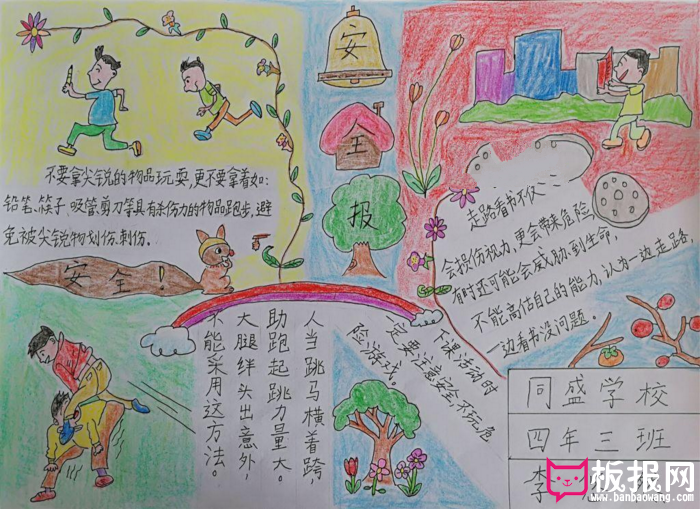 安
全
报
不要拿尖锐的物品玩耍,更不要拿着如:
铅笔、筷子、吸管、剪刀等具有杀伤力的物品跑步,避
免被尖锐物划伤、刺伤。
安全!
走路看书不仅……
会损伤视力,更会带来危险,
有时还可能会威胁到生命,
不能高估自己的能力,认为一边走路
一边看书没问题。
人当跳马横着跨,
助跑起跳力量大。
大腿绊头出意外,
不能采用这方法。
下课活动时
一定要注意安全不玩危
险游戏。
同盛学校
四年三班
李
板报网
www.banbaowang.com